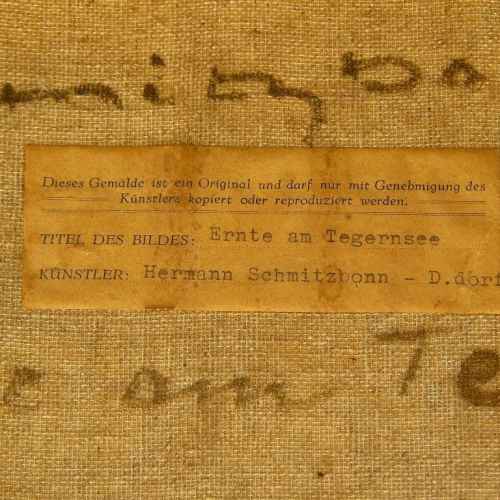 mitzbo
Dieses Gemälde ist ein Original und darf nur mit Genehmigung des
Künstlers kopiert oder reproduziert werden.
TITEL DES BILDES: Ernte am Tegernsee
KÜNSTLER: Hermann Schmitzbonn - D.dorf
e am Te